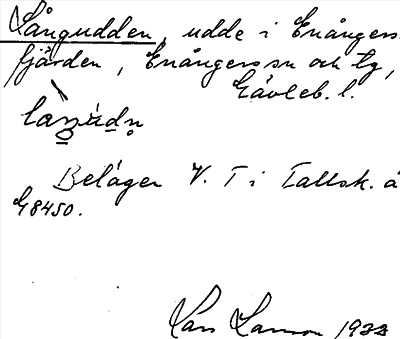 Långudden, udde i Enångers-
fjärden, Enångers sn och tg,
Gävleb. l.
Beläger V. T i Tallsk. å
G8450.
Lars Larsson 1933